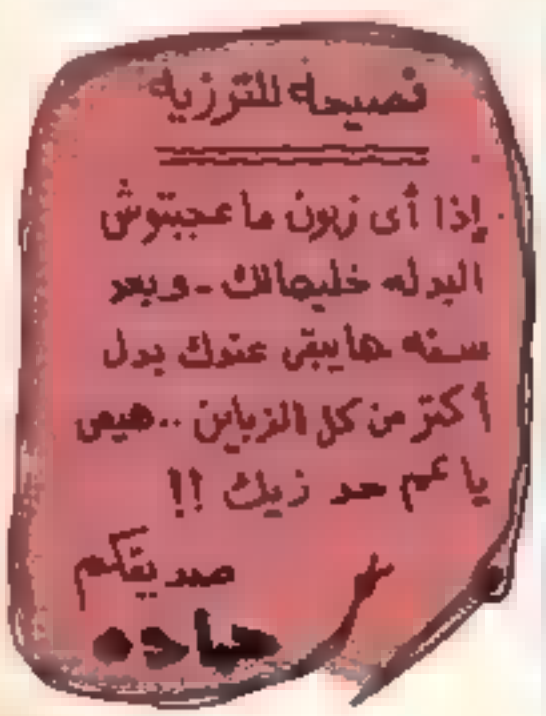 نصيحه للترزيه
إذا أى زبون ما عجبتوش
البدله خليهالك - وبعد
سنه هايبقى عندك بدل
أكتر من كل الزباين .. هيص
يا عم حد زيك !!
صديقكم
حماده